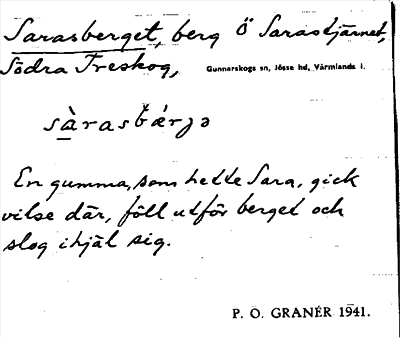 Sarasberget, berg Ö Sarastjärnet,
Södra Treskog, Gunnarskogs sn, Jösse hd, Värmlands l.
sàrasbærjə
En gumma, som hette Sara, gick
vilse där, föll utför berget och
slog ihjäl sig.
P. O. GRANÉR 1941.